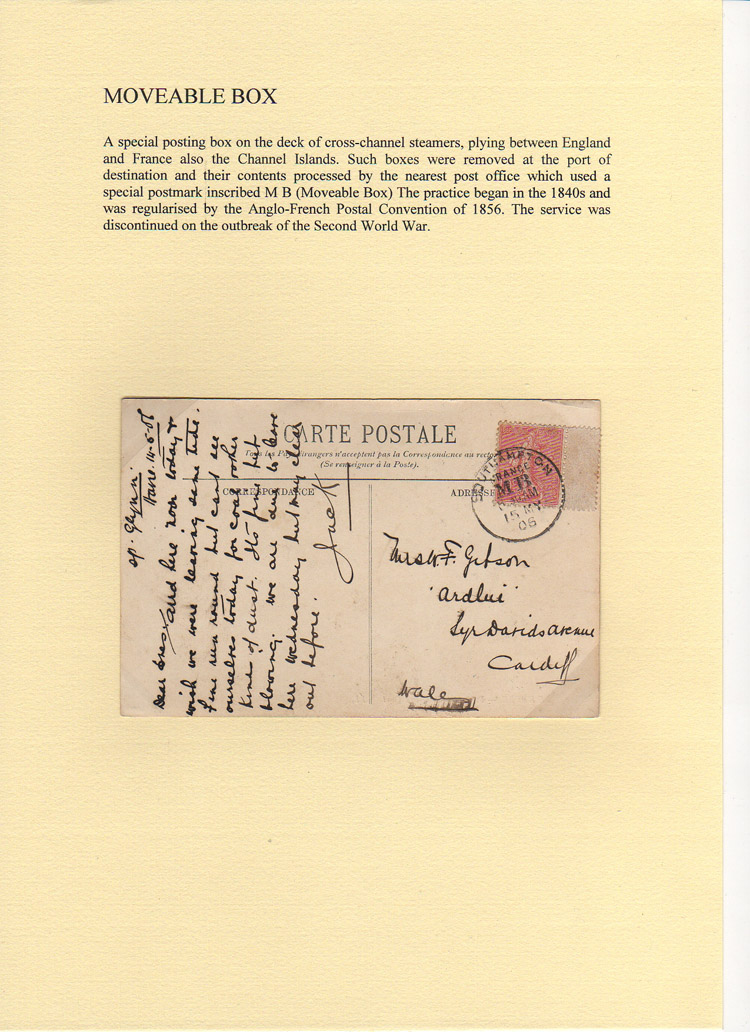 MOVEABLE BOX
A special posting box on the deck of cross-channel steamers, plying between England
and France also the Channel Islands. Such boxes were removed at the port of
destination and their contents processed by the nearest post office which used a
special postmark inscribed M B (Moveable Box) The practice began in the 1840s and
was regularised by the Anglo-French Postal Convention of 1856. The service was
discontinued on the outbreak of the Second World War.
CARTE POSTALE
Tous les Pays étrangers n'acceptent pas la Correspondance au recto
(Se renseigner à la Poste).
CORRESPONDANCE
ADRESSE
SOUTHAMPTON
FRANCE
MB
15 MY
06
Glynn.
Dear
arrd here noon today &
wish we were leaving same time.
Fine run round but cant see
ourselves today for coal & other
kinds of dust. Its fine but
blowing. we are due to leave
here Wednesday but may clear
out before.
Jack
Mrs W.F. Gibson
'Ardlui'
Davids Avenue
Cardiff
Wale